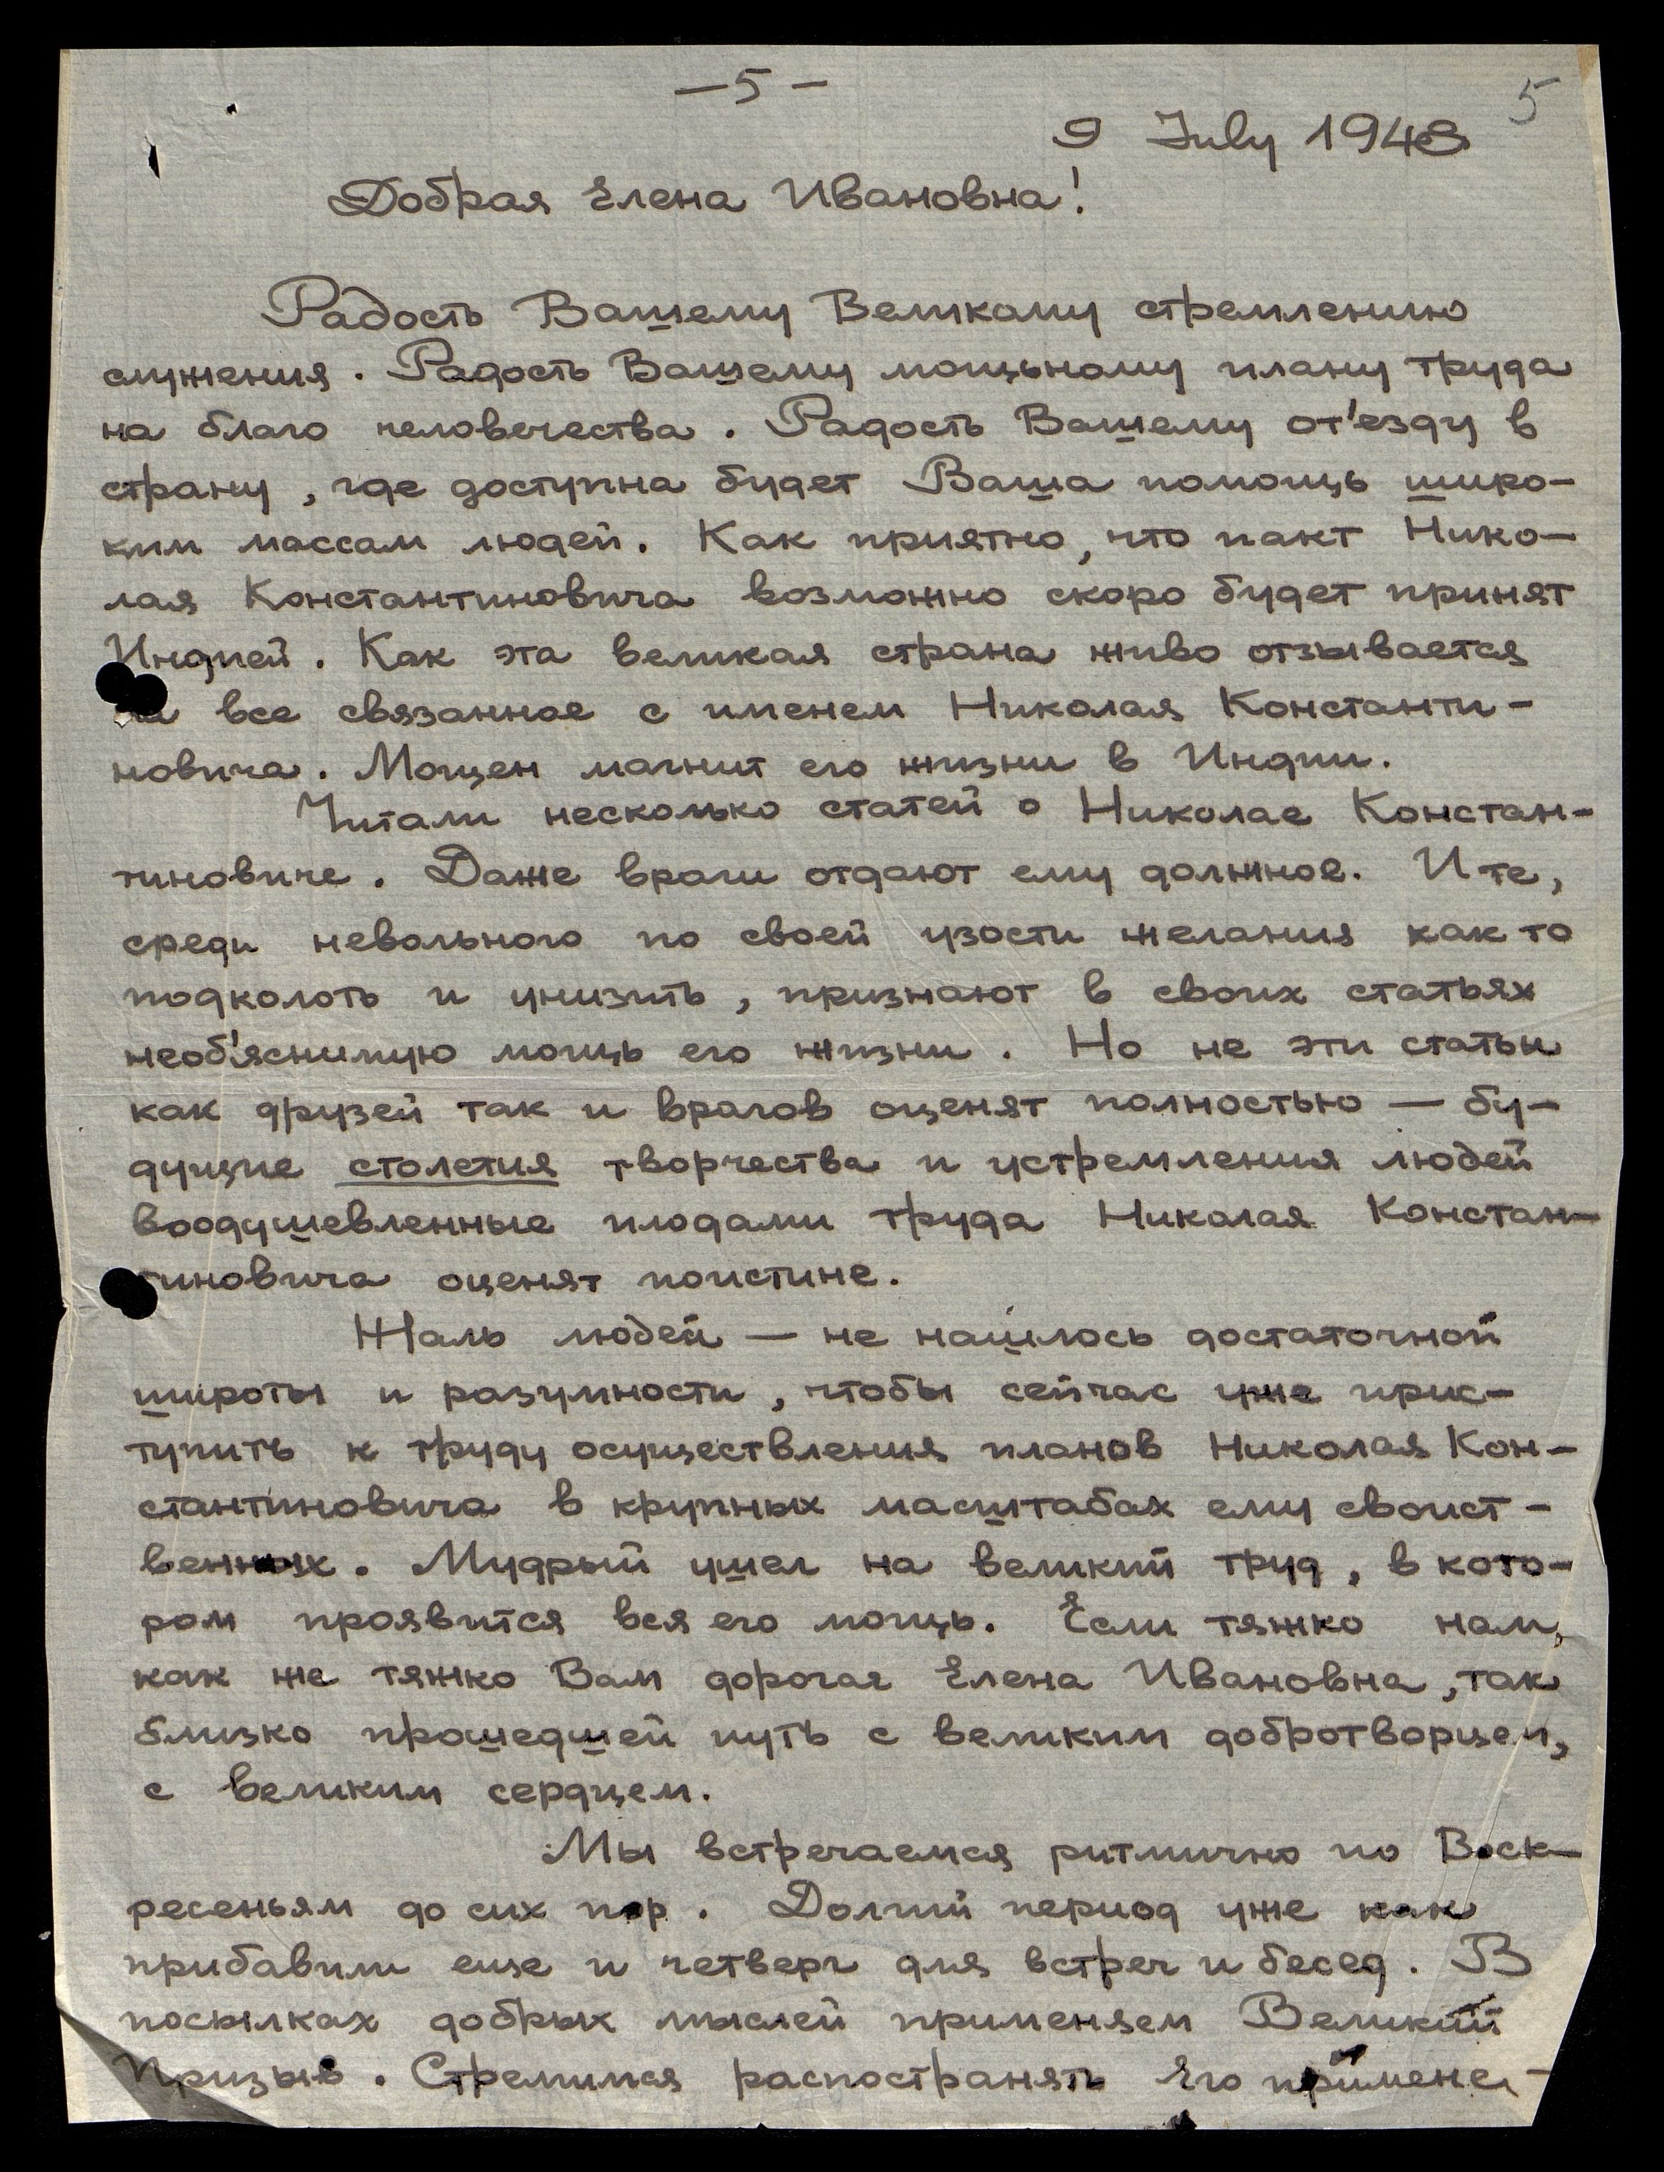 —5—
5
9 July 1948
Добрая Елена Ивановна!
Радость Вашему Великому стремлению
служения. Радость Вашему мощьному плану труда
на благо человечества. Радость Вашему от'езду в
страну, где доступна будет Ваша помощь широ-
ким массам людей. Как приятно, что пакт Нико-
лая Константиновича возможно скоро будет принят
Индией. Как эта великая страна живо отзывается
на все связанное с именем Николая Константи-
новича. Мощен магнит его жизни в Индии.
Читали несколько статей о Николае Констан-
тиновиче. Даже враги отдают ему должное. И те,
среди невольного по своей узости желания как то
подколоть и унизить, признают в своих статьях
необ'яснимую мощь его жизни. Но не эти статьи
как друзей так и врагов оценят полностью — бу-
дущие столетия творчества и устремления людей
воодушевленные плодами труда Николая Констан-
тиновича оценят поистине.
Жаль людей — не нашлось достаточной
широты и разумности, чтобы сейчас уже прис-
тупить к труду осуществления планов Николая Кон-
стантиновича в крупных масштабах ему своист-
венных. Мудрый ушел на великий труд, в кото-
ром проявится вся его мощь. Если тяжко нам,
как же тяжко Вам дорогая Елена Ивановна, так
близко прошедшей путь с великим добротворцем,
с великим сердцем.
Мы встречаемся ритмично по Воск-
ресеньям до сих пор. Долгий период уже как
прибавили еще и четверг для встреч и бесед. В
посылках добрых мыслей применяем Великий
Призыв. Стремимся распостранять Его примене-